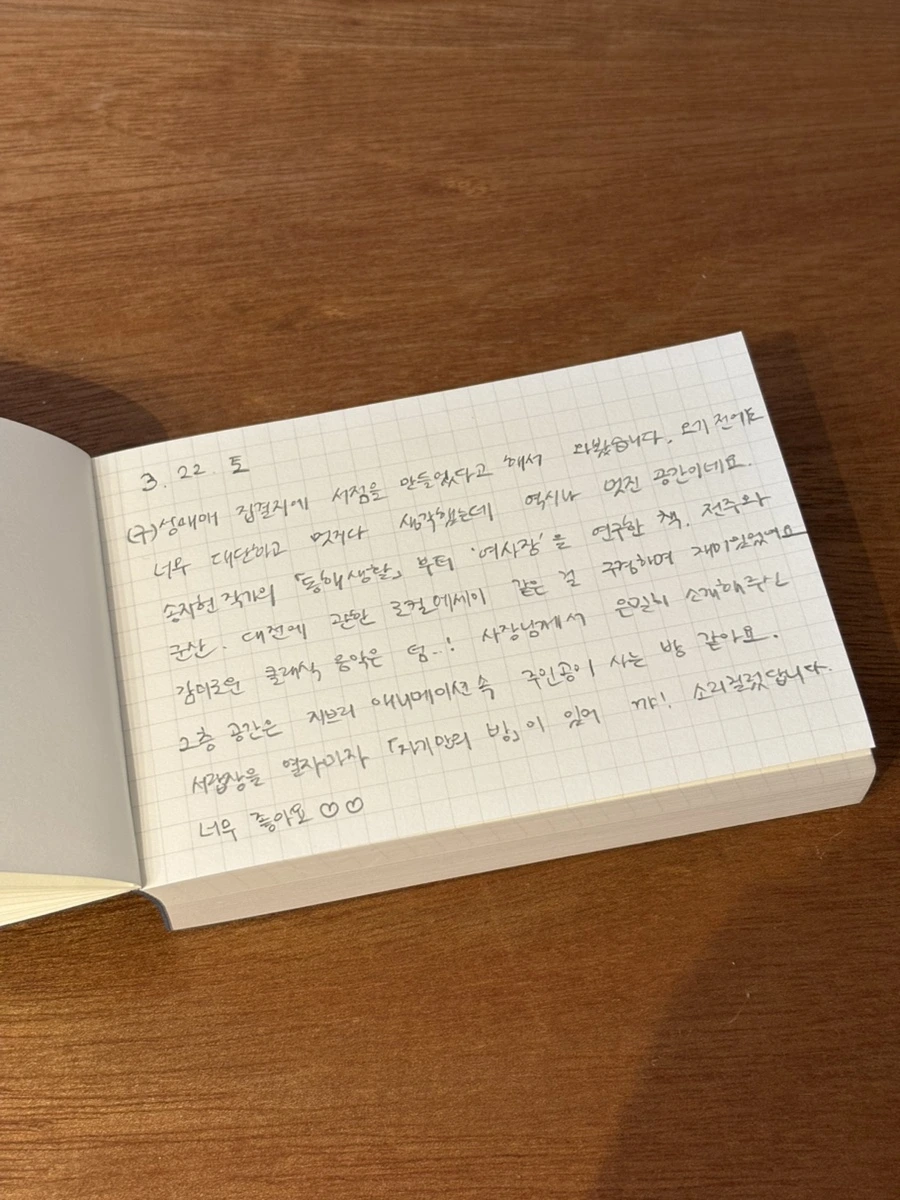 3. 22. 토
(구)성매매 집결지에 서점을 만들었다고 해서 와봤습니다. 오기 전에도
너무 대단하고 멋지다 생각했는데 역시나 멋진 공간이네요.
송지현 작가의 「동해생활」 부터 '여사장'을 연구한 책. 전주와
군산. 대전에 관한 로컬에세이 같은 걸 구경하며 재미있었어요
감미로운 클래식 음악은 덤..! 사장님께서 은밀히 소개해주신
2층 공간은 지브리 애니메이션 속 주인공이 사는 방 같아요.
서랍장을 열자마자 「자기만의 방」이 있어 꺄! 소리질렀답니다.
너무 좋아요 ♡♡